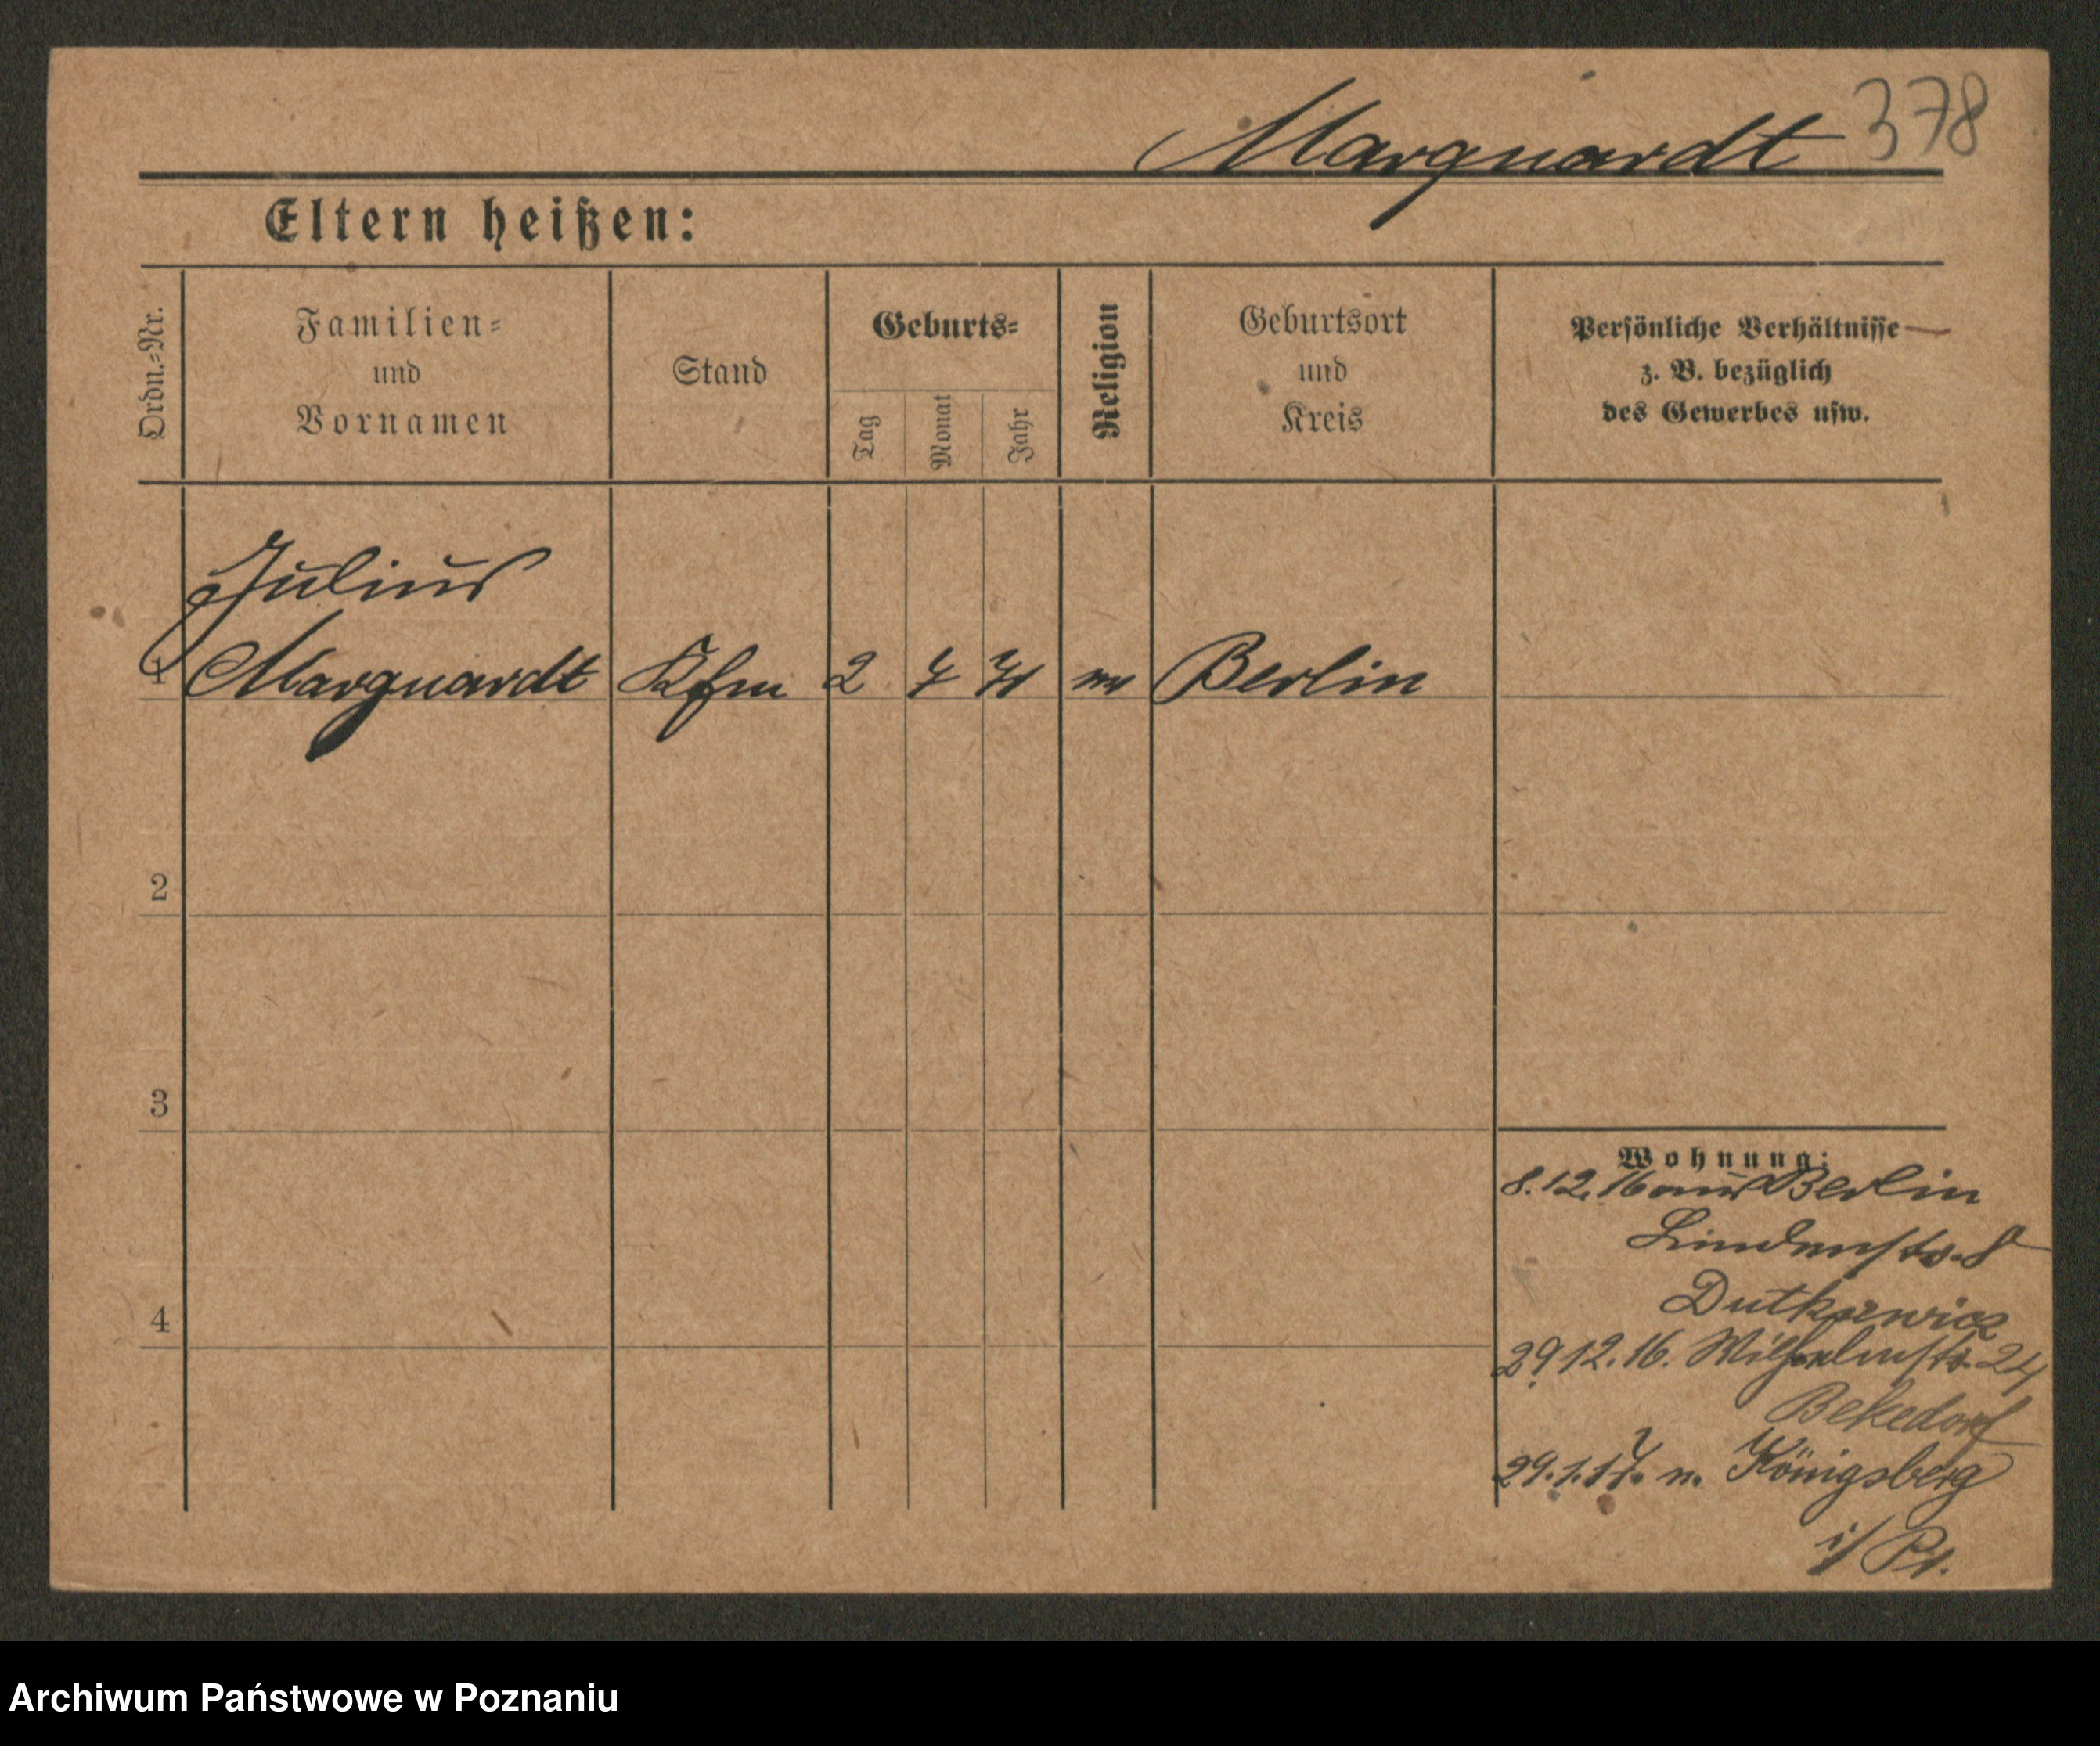 Marquardt 378
Eltern heißen:
Ordn.=Nr.
Familien=
und
Vornamen
Stand
Geburts=
Tag
Monat
Jahr
Religion
Geburtsort
und
Kreis
Persönliche Verhältnisse
z. B. bezüglich
des Gewerbes usw.
Julius
1 Marquardt Kfm 2 Berlin
2
3
4
Wohnung:
8.12.16 aus Berlin
Lindenstr. 8
29.12.16. Wilhelmstr. 24
Bekedorf
29.1.17. n. Königsberg
i/ Pr.
Archiwum Państwowe w Poznaniu